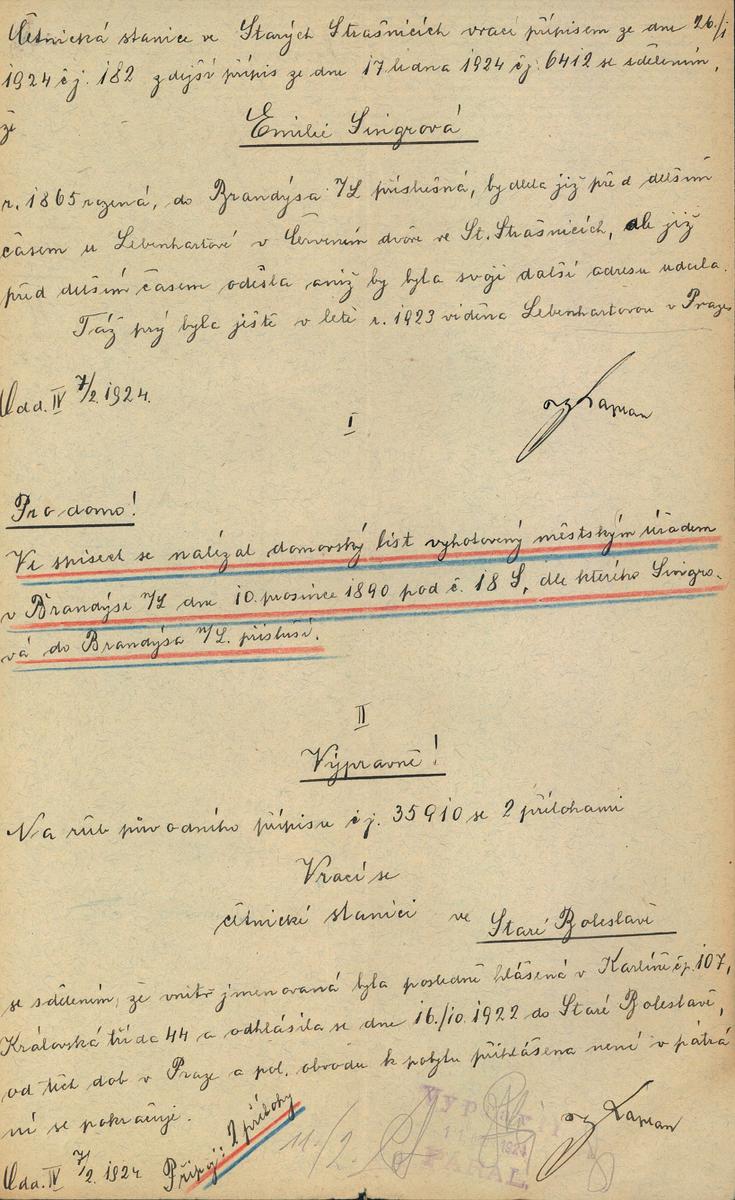 Četnická stanice ve Starých Strašnicích vrací přípisem ze dne 26./I
1924 čj. 182 zdejší přípis ze dne 17 ledna 1924 čj. 6412 se sdělením,
že
Emilie Singrová
r. 1865 rozená, do Brandýsa n/L příslušná, bydlela již před delším
časem u Lebenhartové v Červeném dvoře ve St. Strašnicích, ale již
před delším časem odešla aniž by byla svoji další adresu udala.
Táž prý byla ještě v létě r. 1923 viděna Lebenhartovou v Praze
Odd. IV 7/2. 1924.
I
Pro domo!
Ve spisech se nalézal domovský list vyhotovený městským úřadem
v Brandýse n/L dne 10. prosince 1890 pod č. 18 S, dle kterého Singro-
vá do Brandýsa n/L. přísluší.
II
Výpravně!
Na rub původního přípisu čj. 35910 se 2 přílohami
Vrací se
četnické stanici ve Staré Boleslavě
se sdělením, že vnitř jmenovaná byla posledně hlášená v Karlíně čp. 107,
Královská třída 44 a odhlásila se dne 16./10. 1922 do Staré Boleslavě,
od těch dob v Praze a pol. obvodu k pobytu přihlášena není a v pátrá
ní se pokračuje.
Odd. IV 7/2. 1924 Připoj: 2 přílohy
11./2.